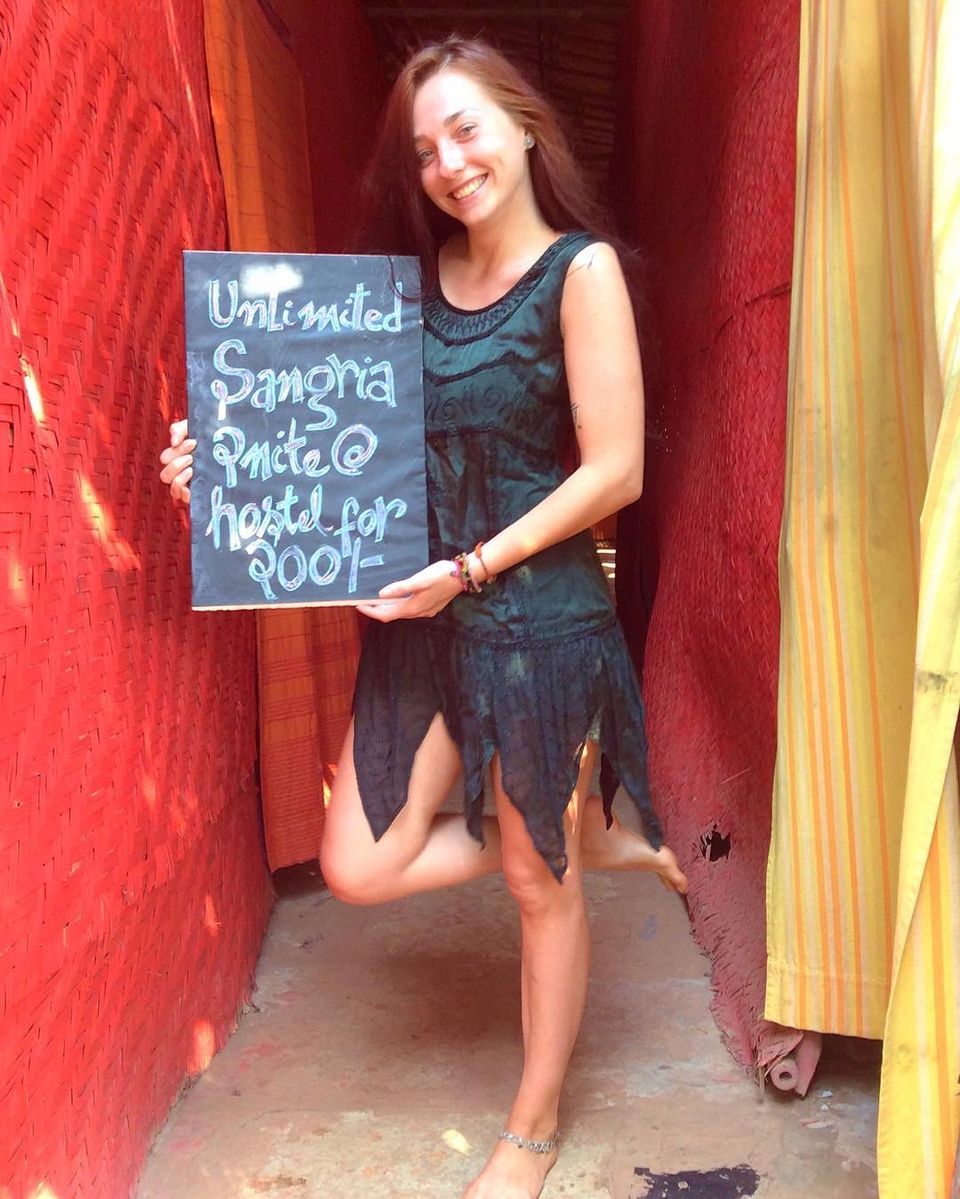 UnLimited
Sangria
2nite @
hostel for
200/-